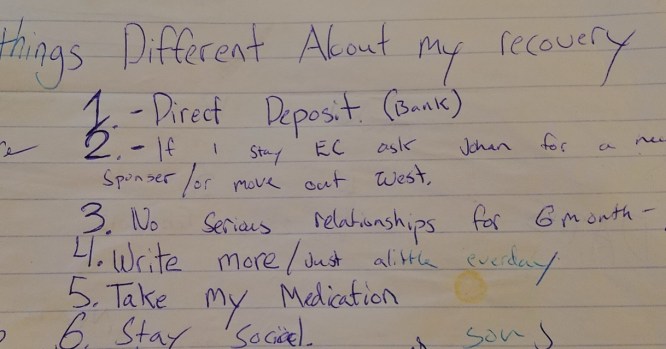 things Different About my recovery
1. - Direct Deposit. (Bank)
2. - If I stay EC ask for a
Sponser/or move out West.
3. No Serious relationships for 6 month -
4. Write more/Just alittle everday
5. Take my Medication
6. Stay Social. son